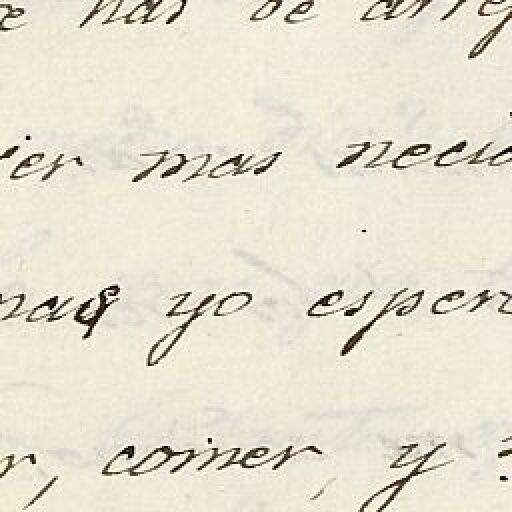 has de arre
ier mas necio
mas yo espero
r, comer, y